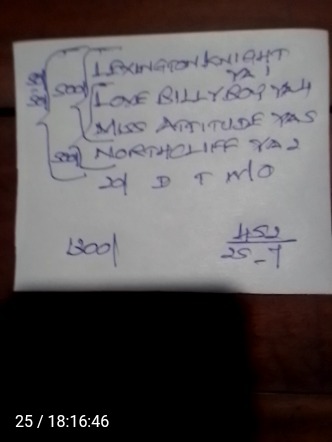 LEXINGTON KNIGHT
YA 1
500/ LOVE BILLY BOY YA4
MISS ATTITUDE YA5
500/ NORTHCLIFF YA2
20/ D T M/O
1200/
452
25-7
25 / 18:16:46